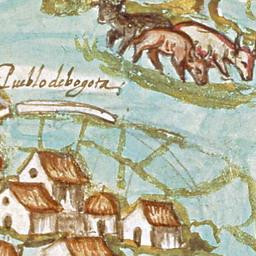 Pueblo de bogota